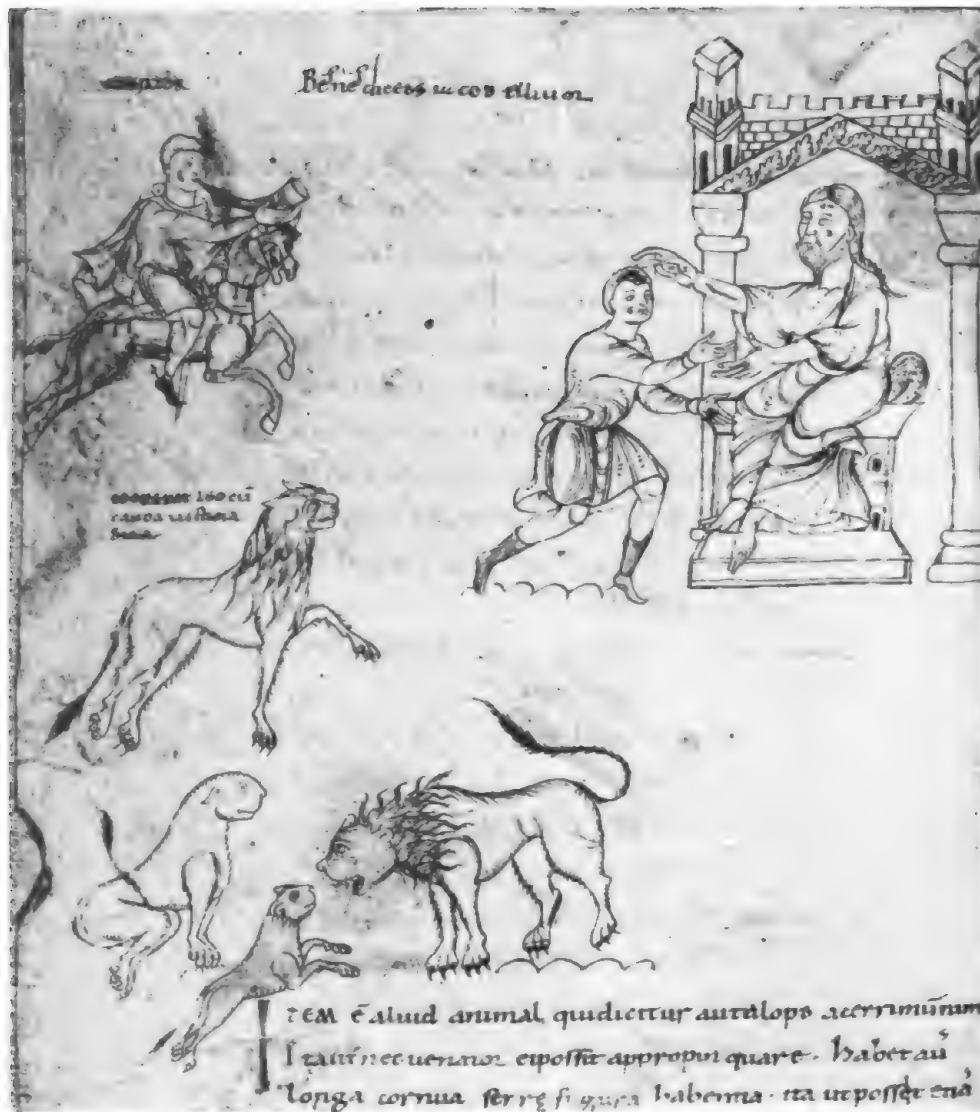 Benedicens iacob filium
leo cū
cauda uestigia
sua
ITEM ē aliud animal quidicitur autalops acerrimū
Ita ut nec uenator ei possit appropin quare · habet aū
longa cornua serrę figura habentia · ita ut possit etiā